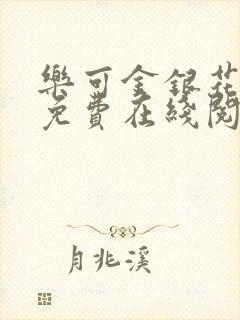 樂可金銀花
免費在綫閱
月兆溪